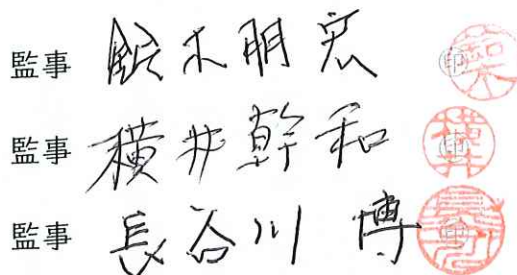 監事 鈴木明宏 印
監事 横井幹和 印
監事 長谷川 博 印